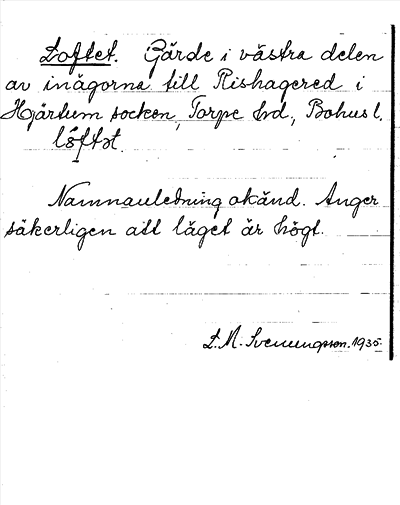 Loftet. Gärde i västra delen
av inägorna till Rishagered i
Hjärtum socken, Torpe hrd., Bohusl.
lôftət.
Namnanledning okänd. Anger
säkerligen att läget är högt.
L. M. Svenungsson. 1935.